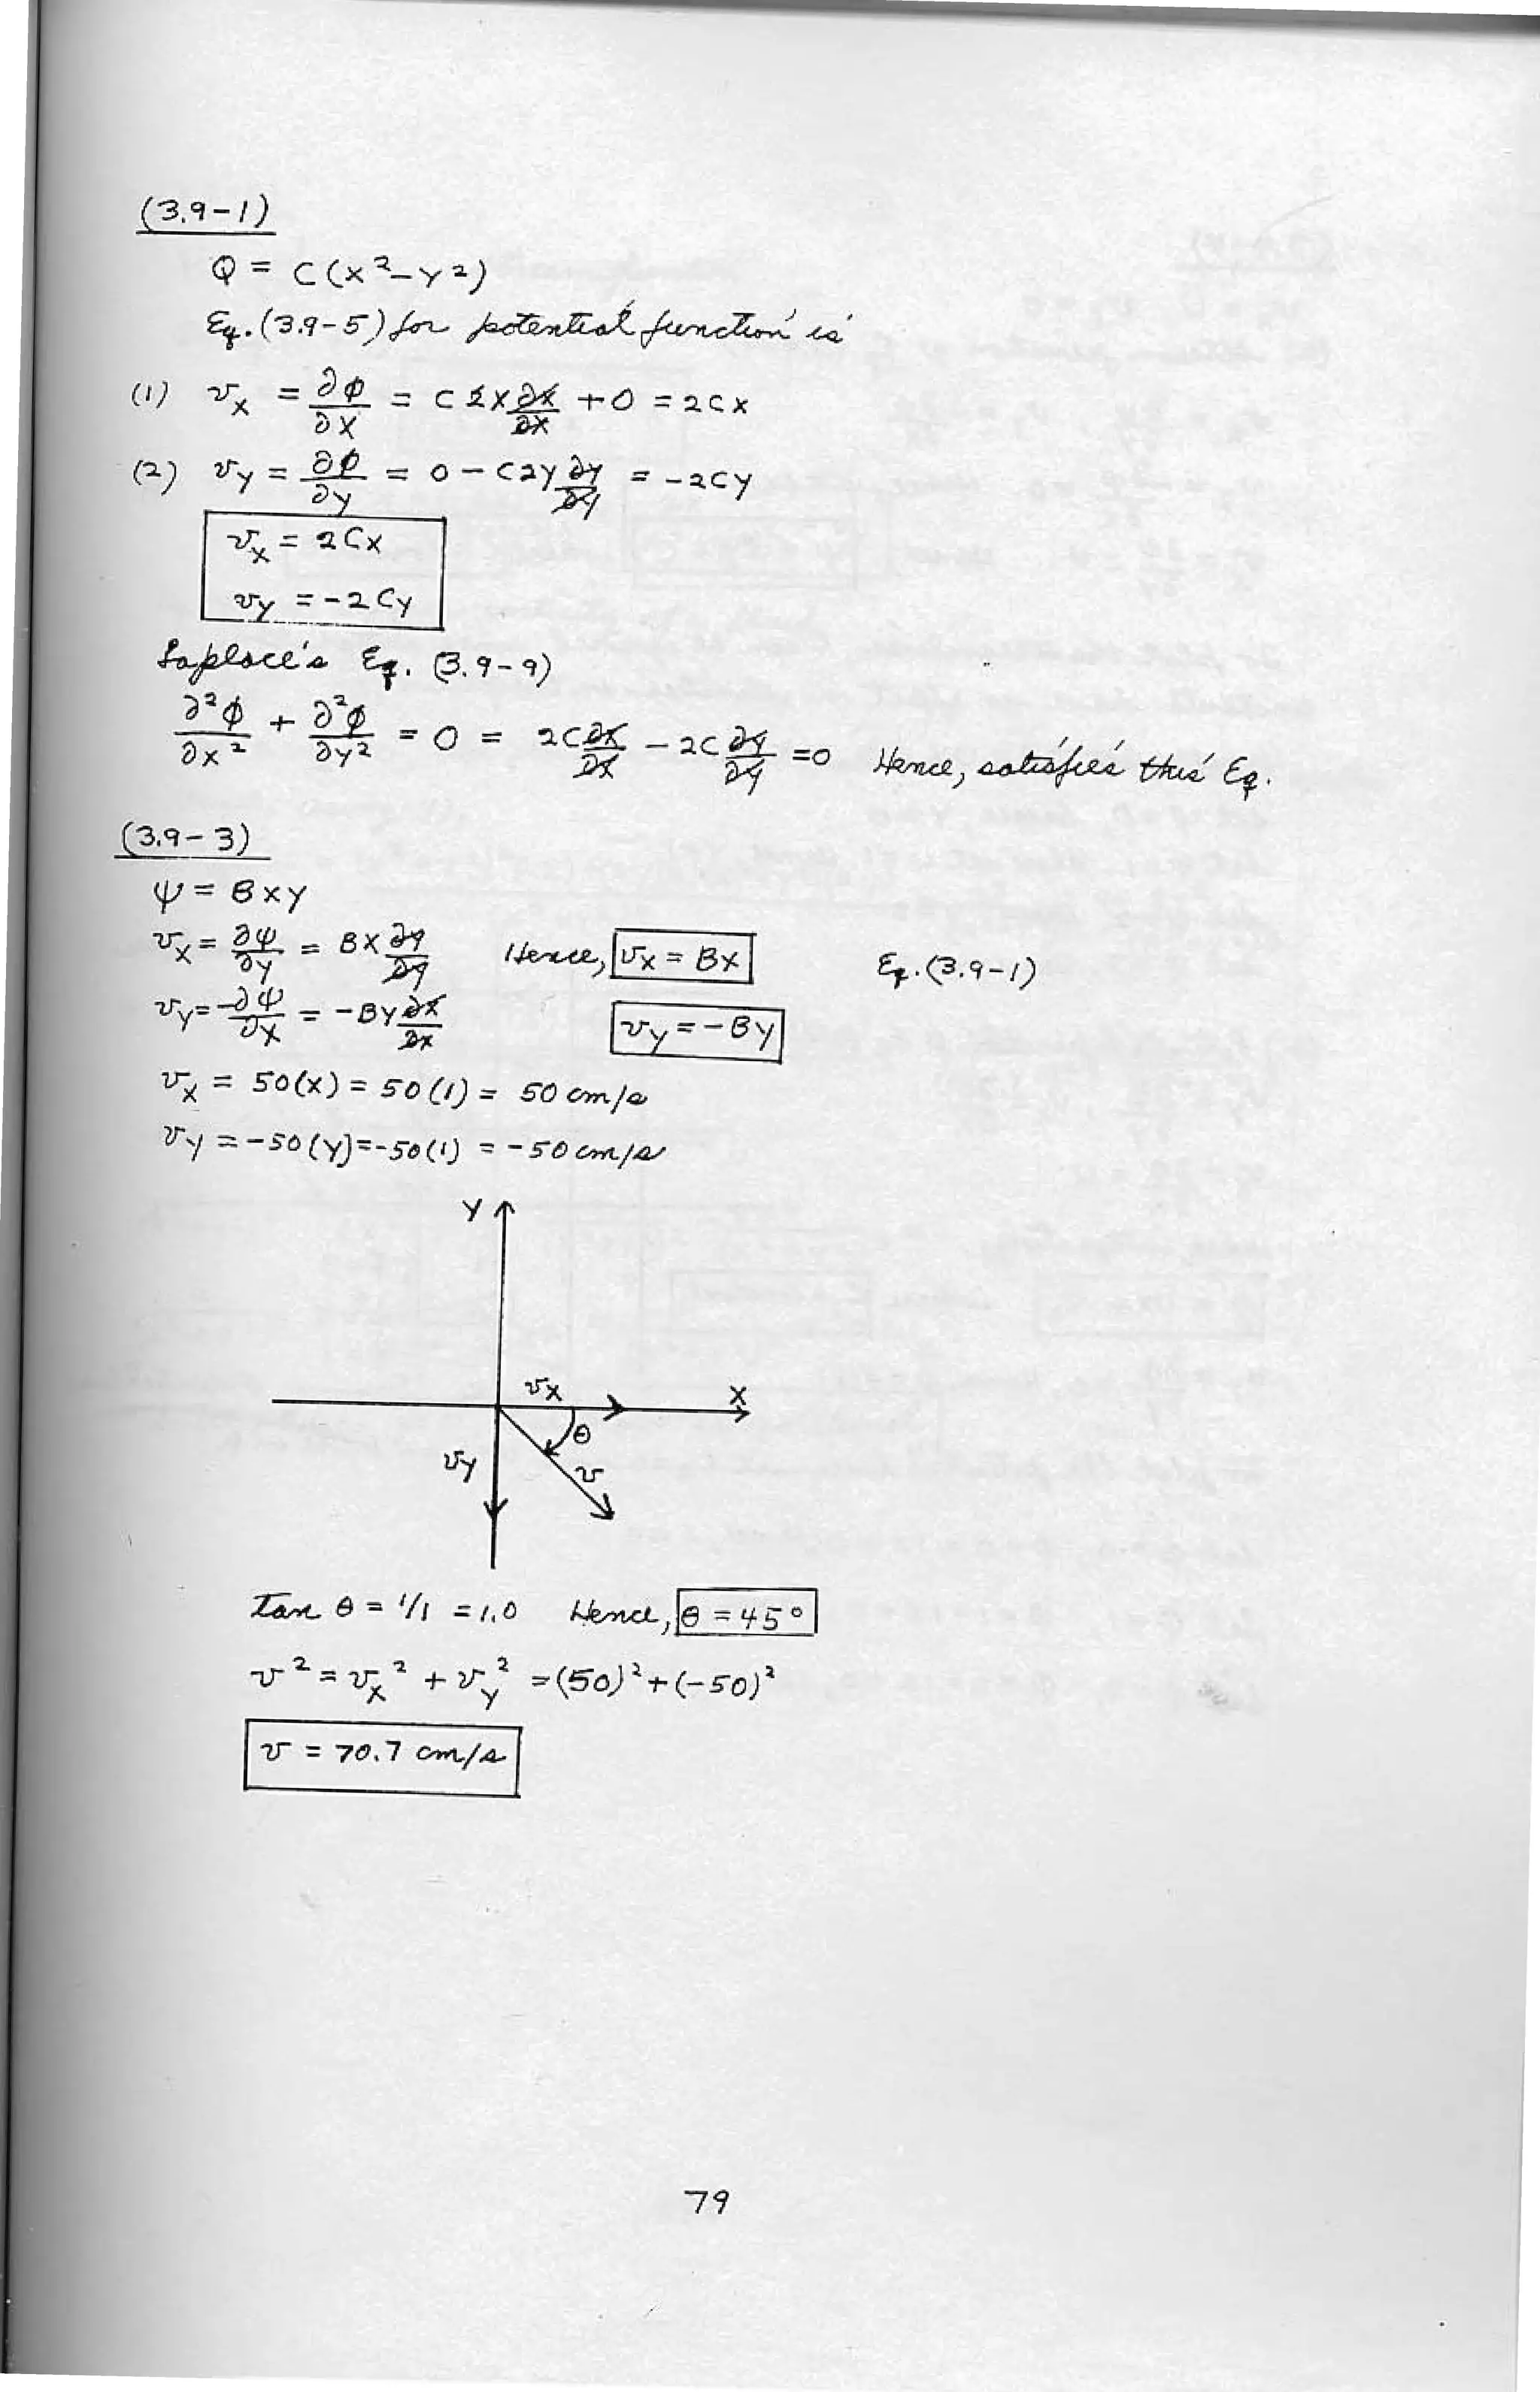 (3.9-1)
Q = C(x²-y²)
Eq.(3.9-5) for potential function is
(1) vx = ∂φ/∂x = C 2x ∂x/∂x + 0 = 2Cx
(2) vy = ∂φ/∂y = 0 - C2y ∂y/∂y = -2Cy
vx = 2Cx
vy = -2Cy
Laplace's Eq. (3.9-9)
∂²φ/∂x² + ∂²φ/∂y² = 0 = 2C ∂x/∂x - 2C ∂y/∂y = 0 Hence, satisfies this Eq.
(3.9-3)
ψ = Bxy
vx = ∂ψ/∂y = Bx ∂y/∂y Hence, vx = Bx Eq.(3.9-1)
vy = -∂ψ/∂x = -By ∂x/∂x vy = -By
vx = 50(x) = 50(1) = 50 cm/s
vy = -50(y) = -50(1) = -50 cm/s
Y
vx X
θ
vy v
tan θ = 1/1 = 1.0 Hence, θ = 45°
v² = vx² + vy² = (50)² + (-50)²
v = 70.7 cm/s
79